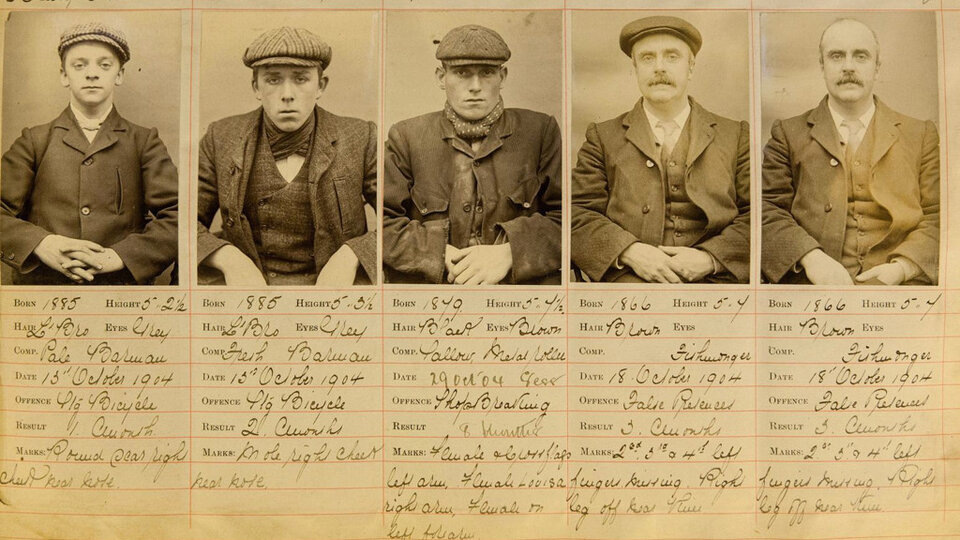 BORN 1885 HEIGHT 5-2½ BORN 1885 HEIGHT 5-3½ BORN 1879 HEIGHT 5-4½ BORN 1866 HEIGHT 5-4 BORN 1866 HEIGHT 5-4
HAIR Lt Bro EYES Grey HAIR Lt Bro EYES Grey HAIR Black EYES Brown HAIR Brown EYES HAIR Brown EYES
COMP. Pale Barman COMP. Fresh Barman COMP. Sallow Metal roller COMP. Fishmonger COMP. Fishmonger
DATE 13th October 1904 DATE 13th October 1904 DATE 29 Oct 04 DATE 18 October 1904 DATE 18th October 1904
OFFENCE Stg Bicycle OFFENCE Stg Bicycle OFFENCE Shop Breaking OFFENCE False Pretences OFFENCE False Pretences
RESULT 1. Cmonth RESULT 2. Cmonths RESULT 8 months RESULT 3. Cmonths RESULT 3. Cmonths
MARKS: Round scar right MARKS: Mole right cheek MARKS: Female & Cross flags MARKS: 2nd 3rd & 4th left MARKS: 2nd 3rd & 4th left
cheek near nose. near nose. left arm, Female Louisa fingers missing. Right fingers missing. Right
right arm, Female on leg off near knee leg off near knee
left forearm